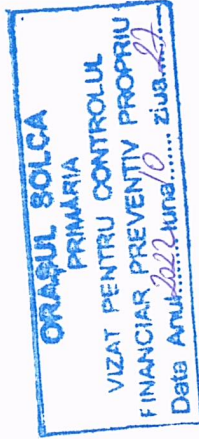 ORAŞUL SOLCA
PRIMĂRIA
VIZAT PENTRU CONTROLUL
FINANCIAR PREVENTIV PROPRIU
Data Anul 2022 luna 10 ziua 27